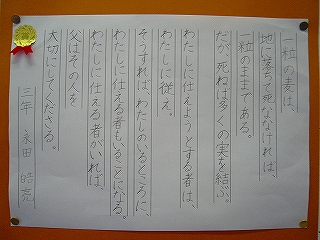 一粒の麦は、
地に落ちて死ななければ、
一粒のままである。
だが、死ねば多くの実を結ぶ。
わたしに仕えようとする者は、
わたしに従え。
そうすれば、わたしのいるところに、
わたしに仕える者もいることになる。
わたしに仕える者がいれば、
父はその人を
大切にしてくださる。
三年 永田 皓亮